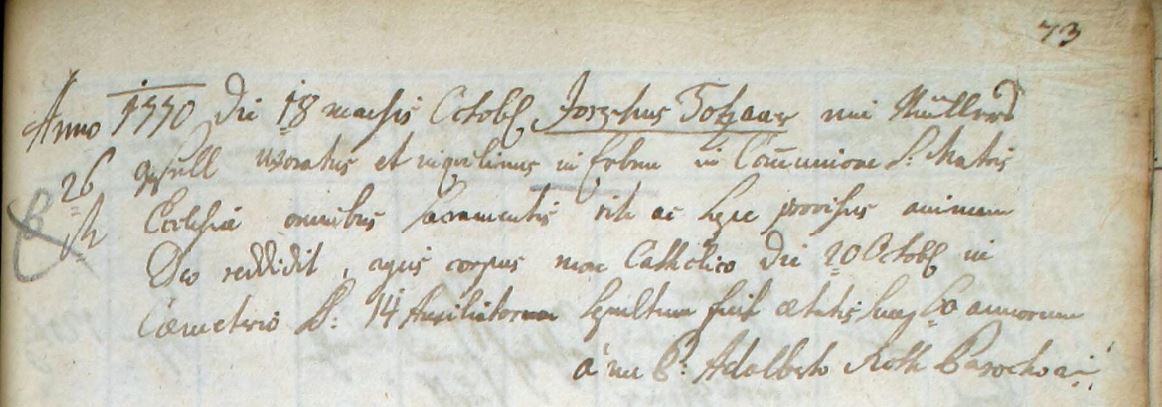 73
Anno 1770 Die 18 mensis Octobr Josephus Tohaar ein Müllers
26 gsell uxoratus et inquilinus in Erben in Communione S: Matris
Ecclesiæ omnibus sacramentis rite ac legie provisus animam
Deo reddidit, ejus corpus more Catholico Die 20 Octobr in
Cæmeterio SS: 14 Auxiliatorum sepultum fuit ætatis suæ 60 annorum
à me P: Adalberto Roth Parocho